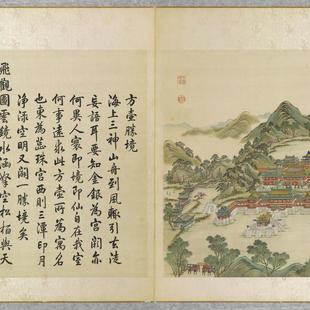 方壺勝境
海上三神山舟到風輒引去徒
妄語耳要知金銀為宮闕亦
何異人寰即境即仙自在我室
何事遠求此方壺所為寓名
也東為蕊珠宮西則三潭印月
淨淥空明又闢一勝境矣
飛觀圖雲鏡水涵拏空松柏與天